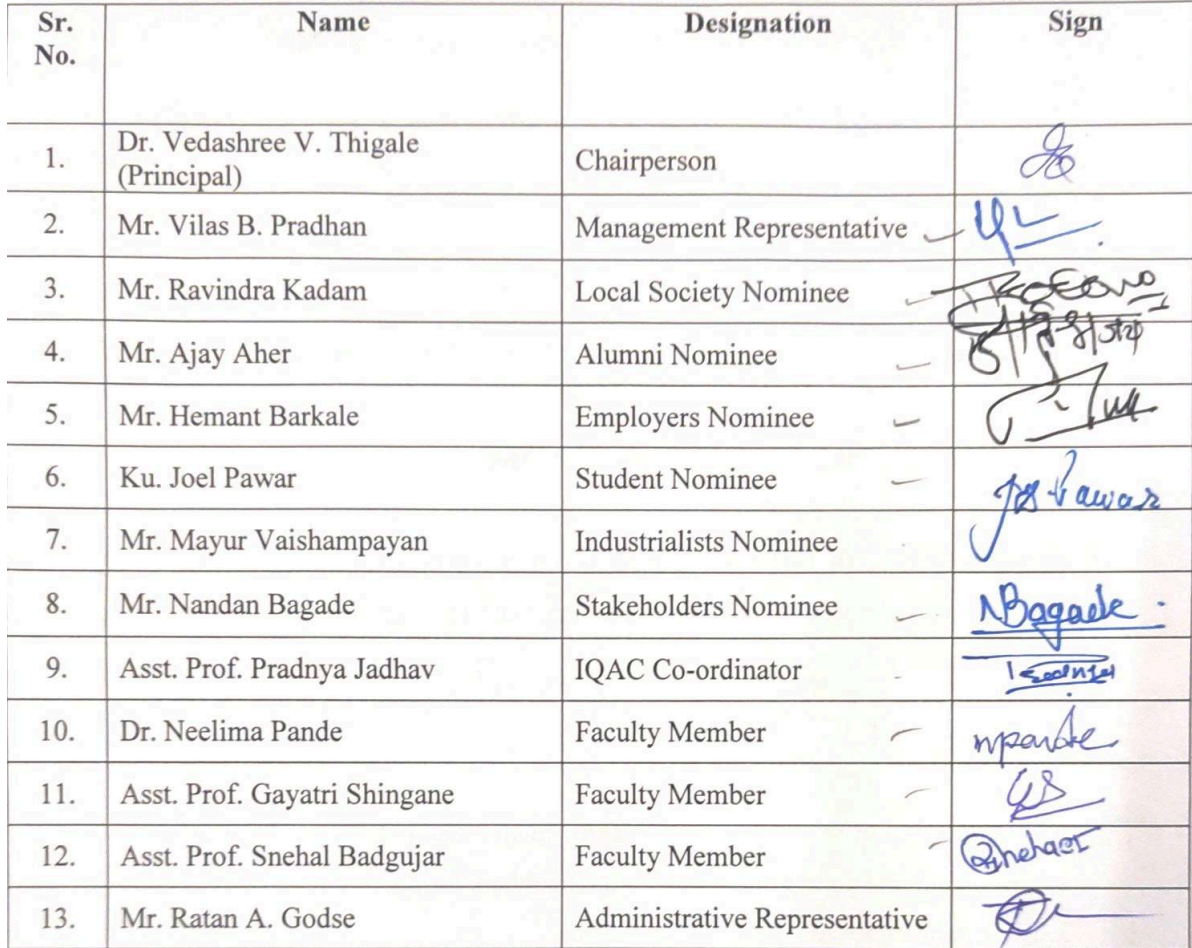 Sr. No. Name Designation Sign
1. Dr. Vedashree V. Thigale (Principal) Chairperson
2. Mr. Vilas B. Pradhan Management Representative
3. Mr. Ravindra Kadam Local Society Nominee
4. Mr. Ajay Aher Alumni Nominee
5. Mr. Hemant Barkale Employers Nominee
6. Ku. Joel Pawar Student Nominee Pawar
7. Mr. Mayur Vaishampayan Industrialists Nominee
8. Mr. Nandan Bagade Stakeholders Nominee NBagade
9. Asst. Prof. Pradnya Jadhav IQAC Co-ordinator
10. Dr. Neelima Pande Faculty Member npande
11. Asst. Prof. Gayatri Shingane Faculty Member
12. Asst. Prof. Snehal Badgujar Faculty Member
13. Mr. Ratan A. Godse Administrative Representative